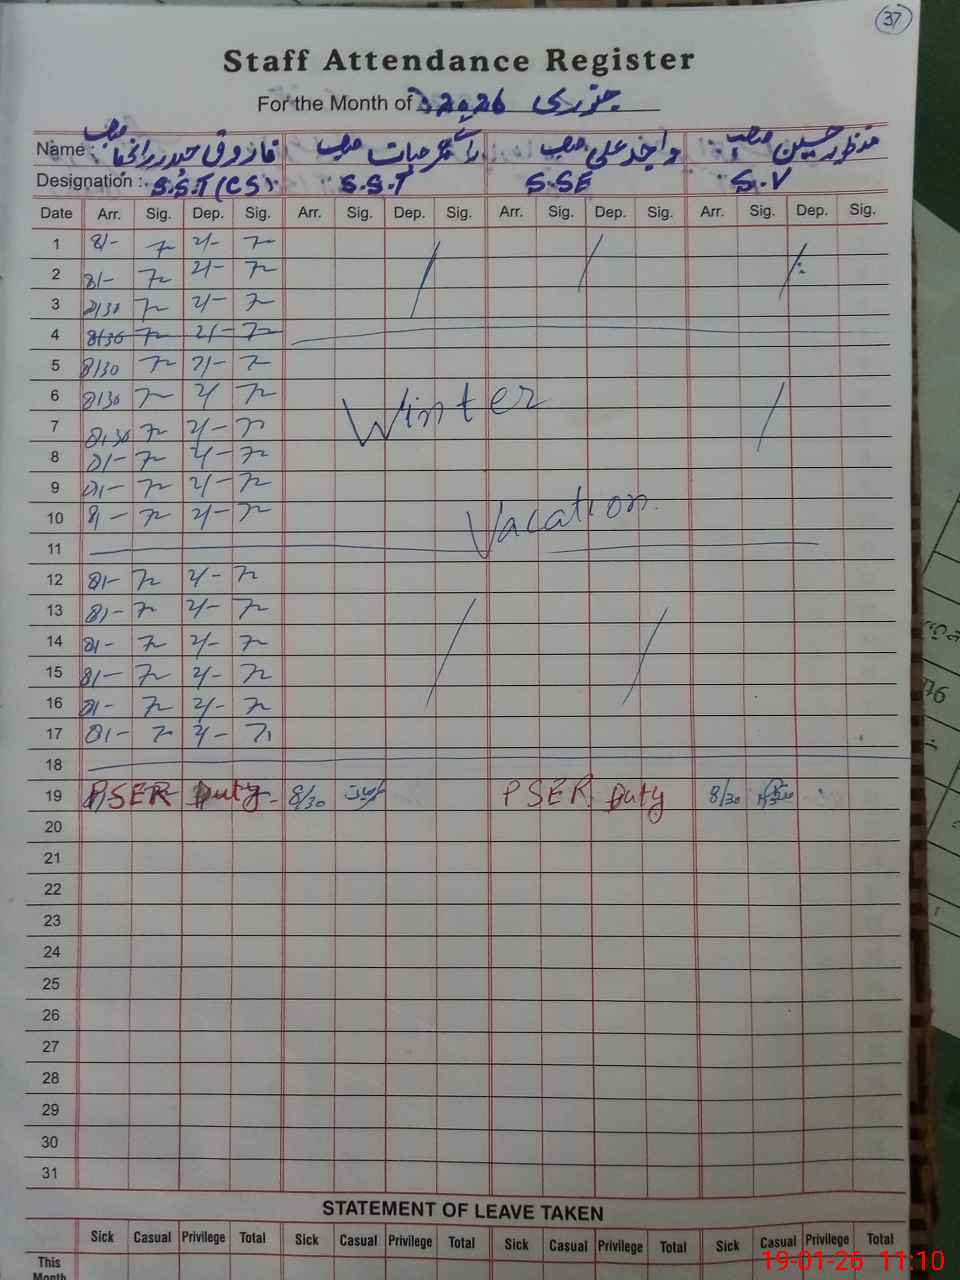 37
Staff Attendance Register
For the Month of جنوری 2026
Name: فاروق حیدر رانجھا صاحب رائے عمر حیات صاحب واجد علی صاحب منظور حسین صاحب
Designation: S.S.T (CS). S.S.T S.SE S.V
Date Arr. Sig. Dep. Sig. Arr. Sig. Dep. Sig. Arr. Sig. Dep. Sig. Arr. Sig. Dep. Sig.
1 8/- 2/-
2 8/- 2/-
3 8/30 2/-
4 8/30 2/-
5 8/30 2/-
6 8/30 2/ Winter
7 8/30 2/-
8 8/- 2/-
9 8/- 2/-
10 8/- 2/- Vacation
11
12 8/- 2/-
13 8/- 2/-
14 8/- 2/-
15 8/- 2/-
16 8/- 2/-
17 8/- 2/-
18
19 PSER Duty 8/30 PSER Duty 8/30
20
21
22
23
24
25
26
27
28
29
30
31
STATEMENT OF LEAVE TAKEN
Sick Casual Privilege Total Sick Casual Privilege Total Sick Casual Privilege Total Sick Casual Privilege Total
This
Month
19-01-26 11:10